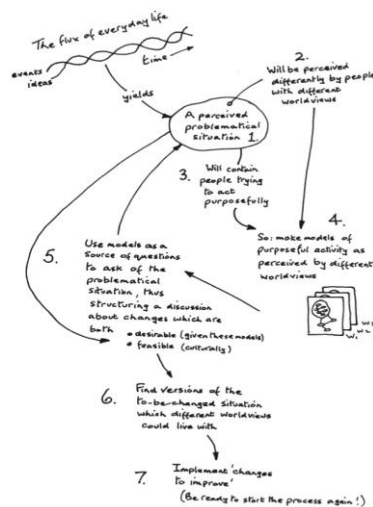 The flux of everyday life
events
ideas
time
yields
A perceived
problematical
situation 1.
2.
Will be perceived
differently by people
with different
worldviews
3.
Will contain
people trying
to act
purposefully
4.
So: make models of
purposeful activity as
perceived by different
worldviews
W1
W2
W3
5.
Use models as a
source of questions
to ask of the
problematical
situation, thus
structuring a discussion
about changes which are
both
• desirable (given these models)
• feasible (culturally)
6.
Find versions of the
to-be-changed situation
which different worldviews
could live with
7.
Implement 'changes
to improve'
(Be ready to start the process again!)